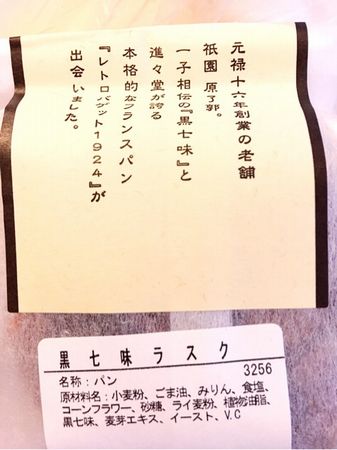 元禄十六年創業の老舗
祇園 原了郭。
一子相伝の『黒七味』と
進々堂が誇る
本格的なフランスパン
『レトロバゲット1924』が
出会いました。
黒七味ラスク
3256
名称:パン
原材料名:小麦粉、ごま油、みりん、食塩、
コーンフラワー、砂糖、ライ麦粉、植物油脂、
黒七味、麦芽エキス、イースト、V.C